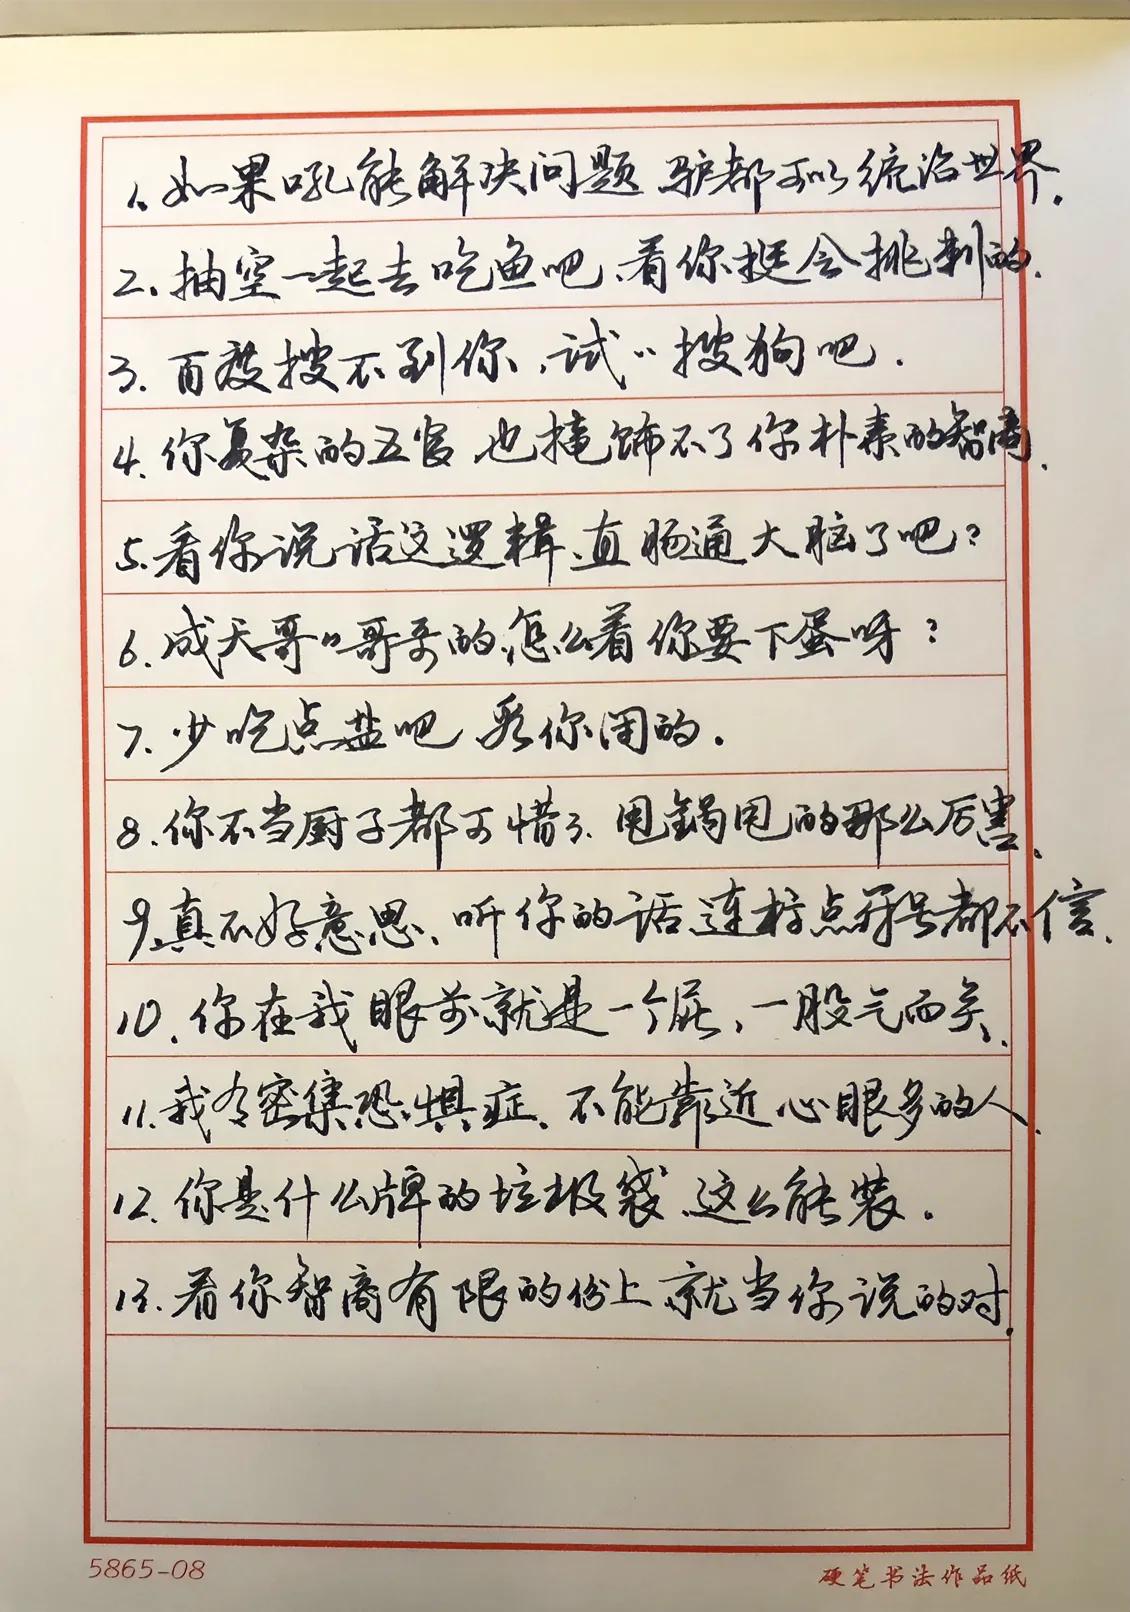 1、如果吼能解决问题 驴都可以统治世界.
2、抽空一起去吃鱼吧、看你挺会挑刺的.
3.百度搜不到你,试〃搜狗吧.
4.你复杂的五官 也掩饰不了你朴素的智商.
5.看你说话这逻辑、直肠通大脑了吧?
6.成天哥〃哥哥的,怎么看你要下蛋呀?
7.少吃点盐吧 看你闲的.
8.你不当厨子都可惜了、甩锅甩的那么厉害.
9.真不好意思、听你的话 连标点符号都不信.
10.你在我眼前就是一个屁,一股气而矣.
11.我有密集恐惧症、不能靠近心眼多的人.
12.你是什么牌的垃圾袋、这么能装.
13.看你智商有限的份上,就当你说的对.
5865-08
硬笔书法作品纸